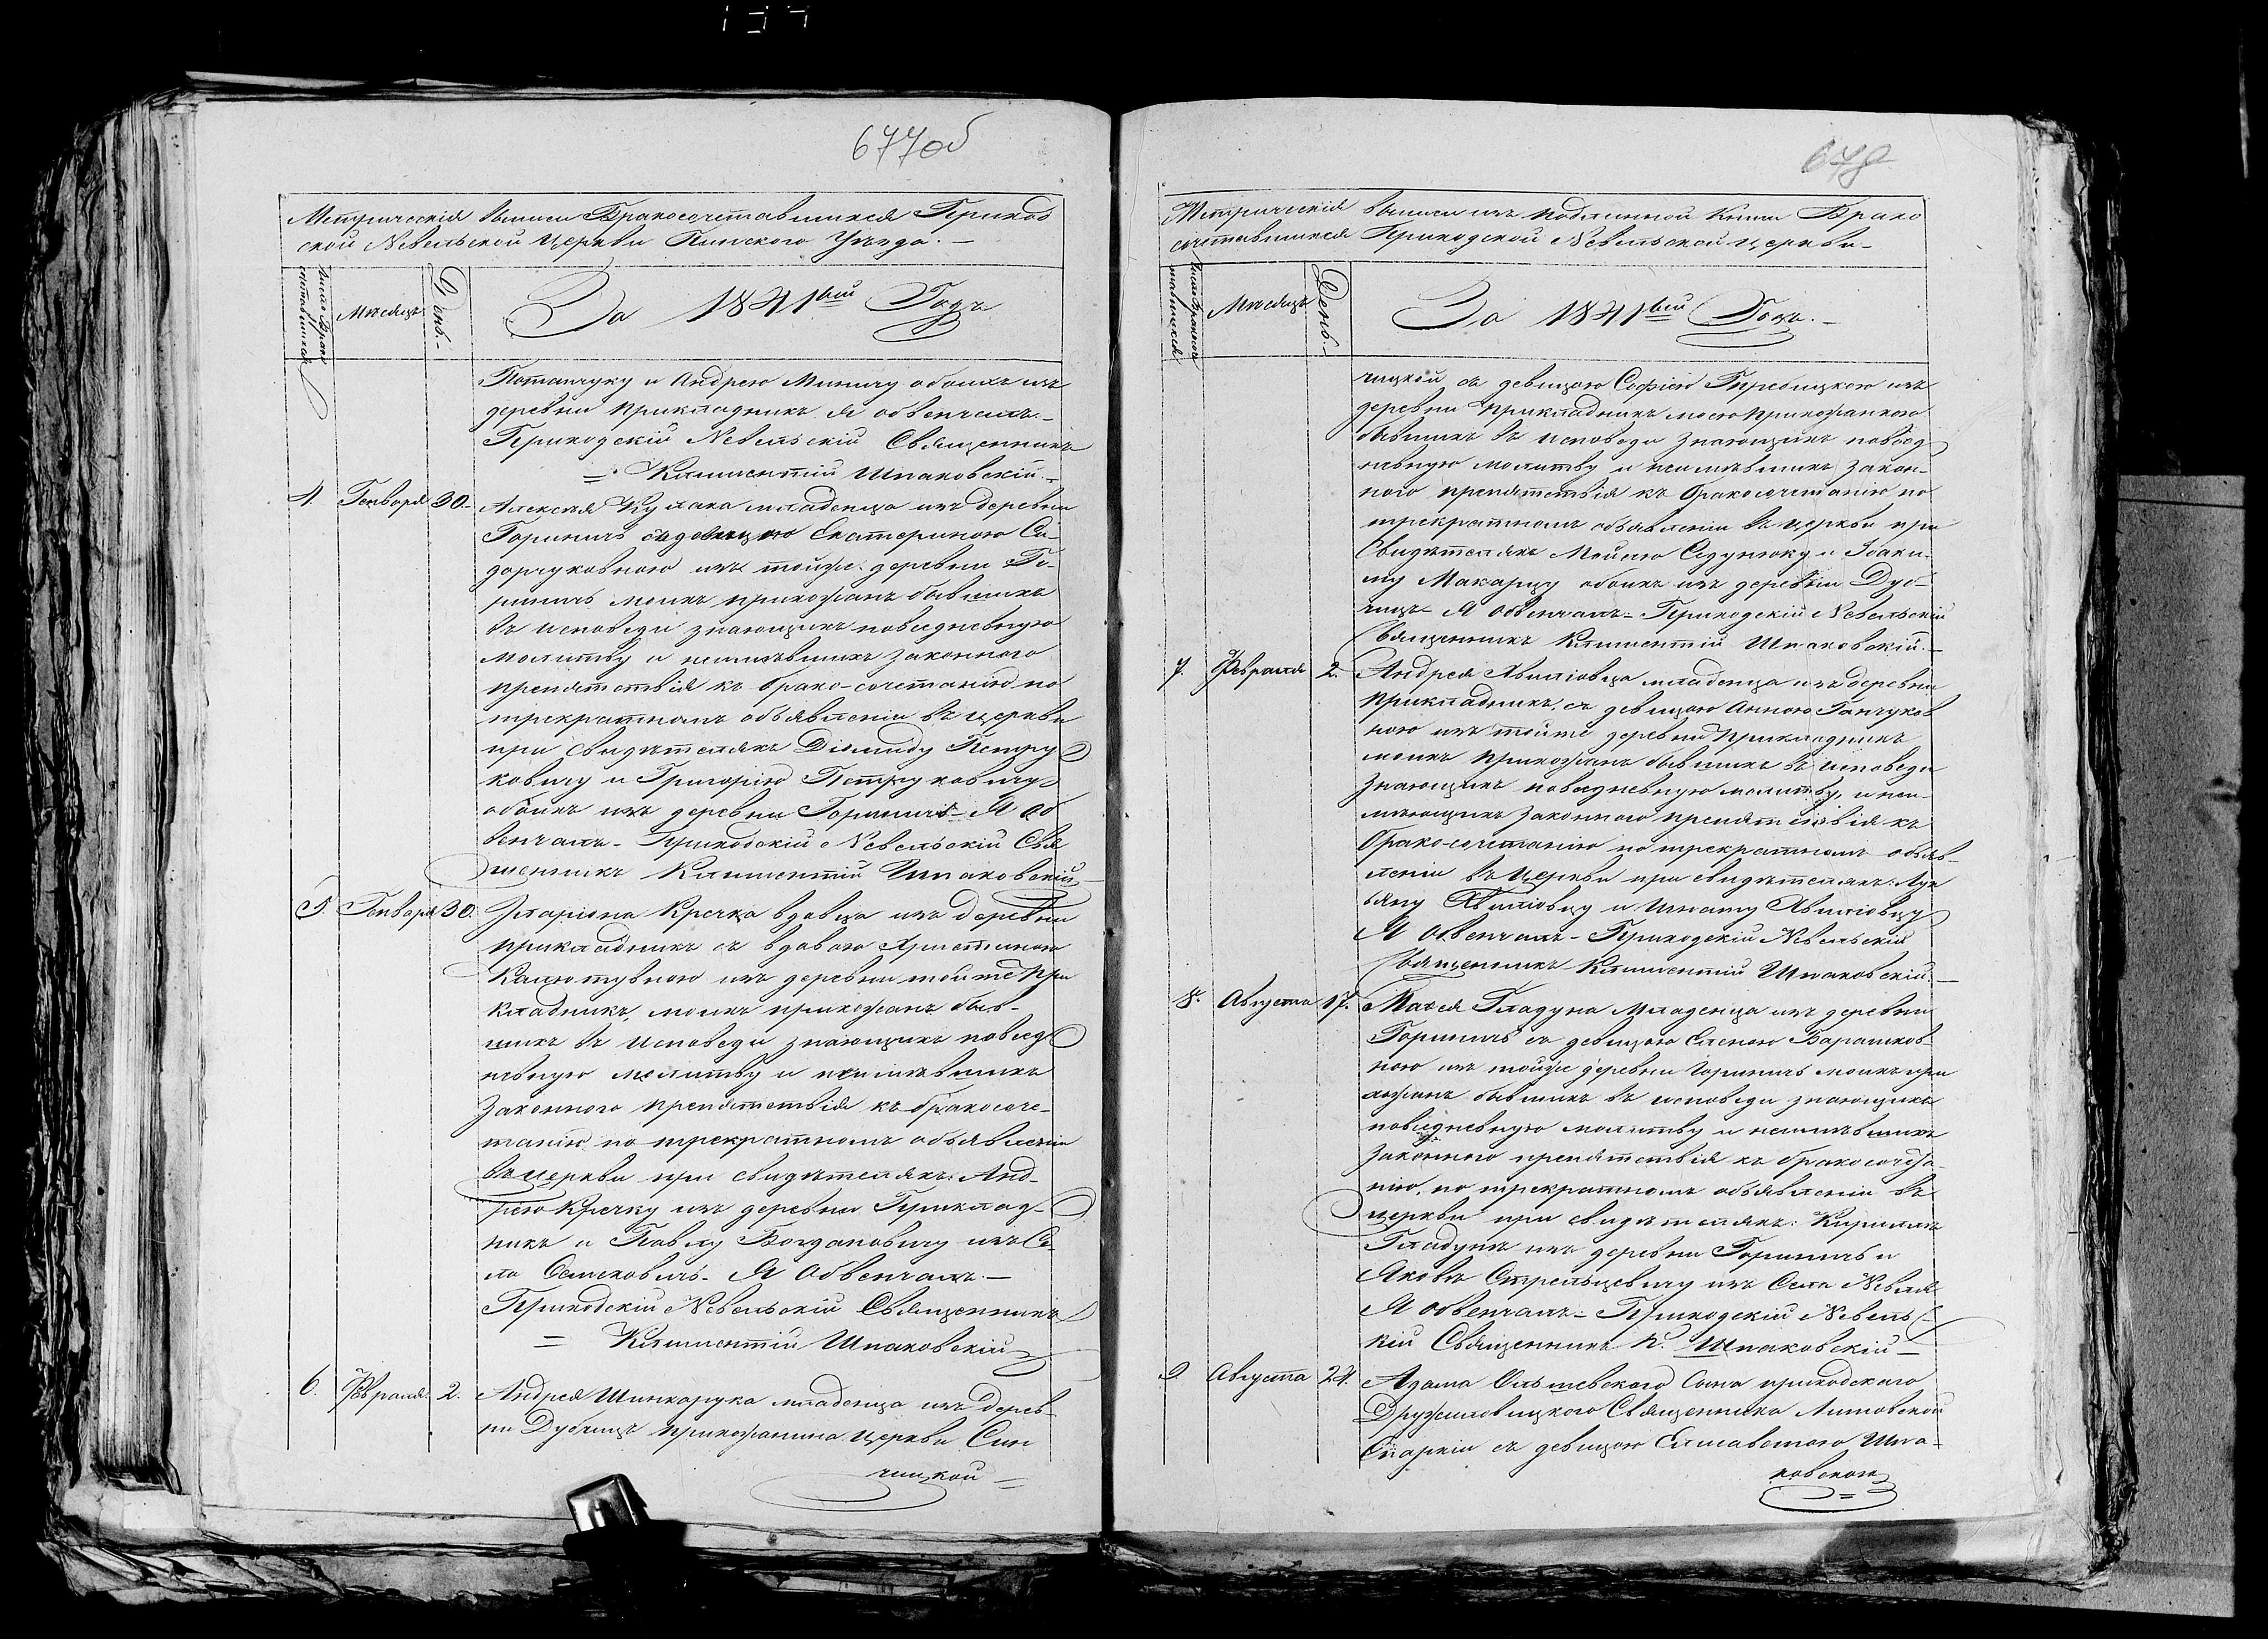 677об
Метрическія выписи Бракосочетавшихся Приход
ской Невельской Церкви Пинского Уезда. —
Число брако
сочетавшихся
Месяцъ
День.
За 1841ый Годъ
Потапчуку и Андрею Миничу обоихъ изъ
деревни Прикладникъ я обвенчалъ. —
Приходскій Невельскій Священникъ
= Климентій Шпаковскій. —
4. Генваря 30. Алексея Кулака младенца изъ деревни
Горинич съ девицею Екатериною Си-
дорчуковною изъ тойже деревни Го-
ринич моихъ прихожанъ бывшихъ
въ исповеди знающихъ повседневную
молитву и неимевшихъ законного
препятствія къ брако-сочетанію по
трекратномъ объявленіи въ церкви
при свидетеляхъ Діомиду Петру
ковичу и Григорію Петруковичу
обоихъ изъ деревни Горинич - Я об
венчалъ - Приходскій Невельскій Свя
щенникъ Климентій Шпаковскій
5. Генваря 30. Иларіона Кречка вдовца изъ деревни
Прикладникъ съ вдовою Христиною
изъ деревни тойже При
кладникъ, моихъ прихожанъ быв-
шихъ въ Исповеди знающихъ повсед
невную молитву и неимевшихъ
Законного препятствія къ бракосоче-
танію по трекратномъ объявленіи
въ церкви при свидетеляхъ: Анд-
рею Кречку изъ деревни Приклад-
никъ и Павлу Богдановичу изъ Се
ла Семиховичъ - Я Обвенчалъ. —
Приходскій Невельскій Священникъ
= Климентій Шпаковскій
6. Февраля 2. Андрея Шинкарука младенца изъ дерев-
ни Дубчицъ прихожанина Церкви Син
чицкой =
678
Метрическія выписи изъ подлинной Книги Брако
сочетавшихся Приходской Невельской церкви —
Число бракосо
четавшихся
Месяцъ
День. —
За 1841ый Годъ. —
чицкой съ девицею Софіею изъ
деревни Прикладникъ моею прихожанкою
бывшихъ въ исповеди знающихъ повсед
невную молитву и неимевшихъ закон-
ного препятствія къ бракосочетанію по
трекратномъ объявленіи въ церкви при
Свидетеляхъ Моисею Седунюку и Іоаки-
му Макарцу обоихъ изъ деревни Дуб-
чицъ Я Обвенчалъ - Приходскій Невельскій
Священникъ Климентій Шпаковскій. —
7. Февраля 2. Андрея младенца изъ деревни
Прикладникъ, съ девицею Анною Ганчуков
ною изъ тойже деревни Прикладникъ
моихъ прихожанъ бывшихъ въ исповеди
знающихъ повседневную молитву, и неи-
меющихъ законного препятствія къ
Брако-сочетанію по трекратномъ объяв-
леніи въ Церкви при свидетеляхъ: Лук
ьяну и Игнату
Я Обвенчалъ - Приходскій Невельскій
Священникъ Климентій Шпаковскій. —
8. Августа 17. Гладуна Младенца изъ деревни
Горинич съ девицею Еленою Барашков
ною изъ тойже деревни Горинич моихъ при
хожанъ бывшихъ въ исповеди знающихъ
повседневную молитву и неимевшихъ
Законного препятствія къ бракосочета-
нію, по трекратномъ объявленіи въ
церкви при свидетеляхъ: Кириллъ
Гладунъ изъ деревни Горинич и
Яковъ Стрельцевичу изъ Села Невеля
Я обвенчалъ - Приходскій Невельс
кій Священникъ К. Шпаковскій —
9. Августа 24. Адама Ольшевского Сына приходского
Дружиловицкого Священника Литовской
Епархіи съ девицею Елисаветою Шпа-
ковскою